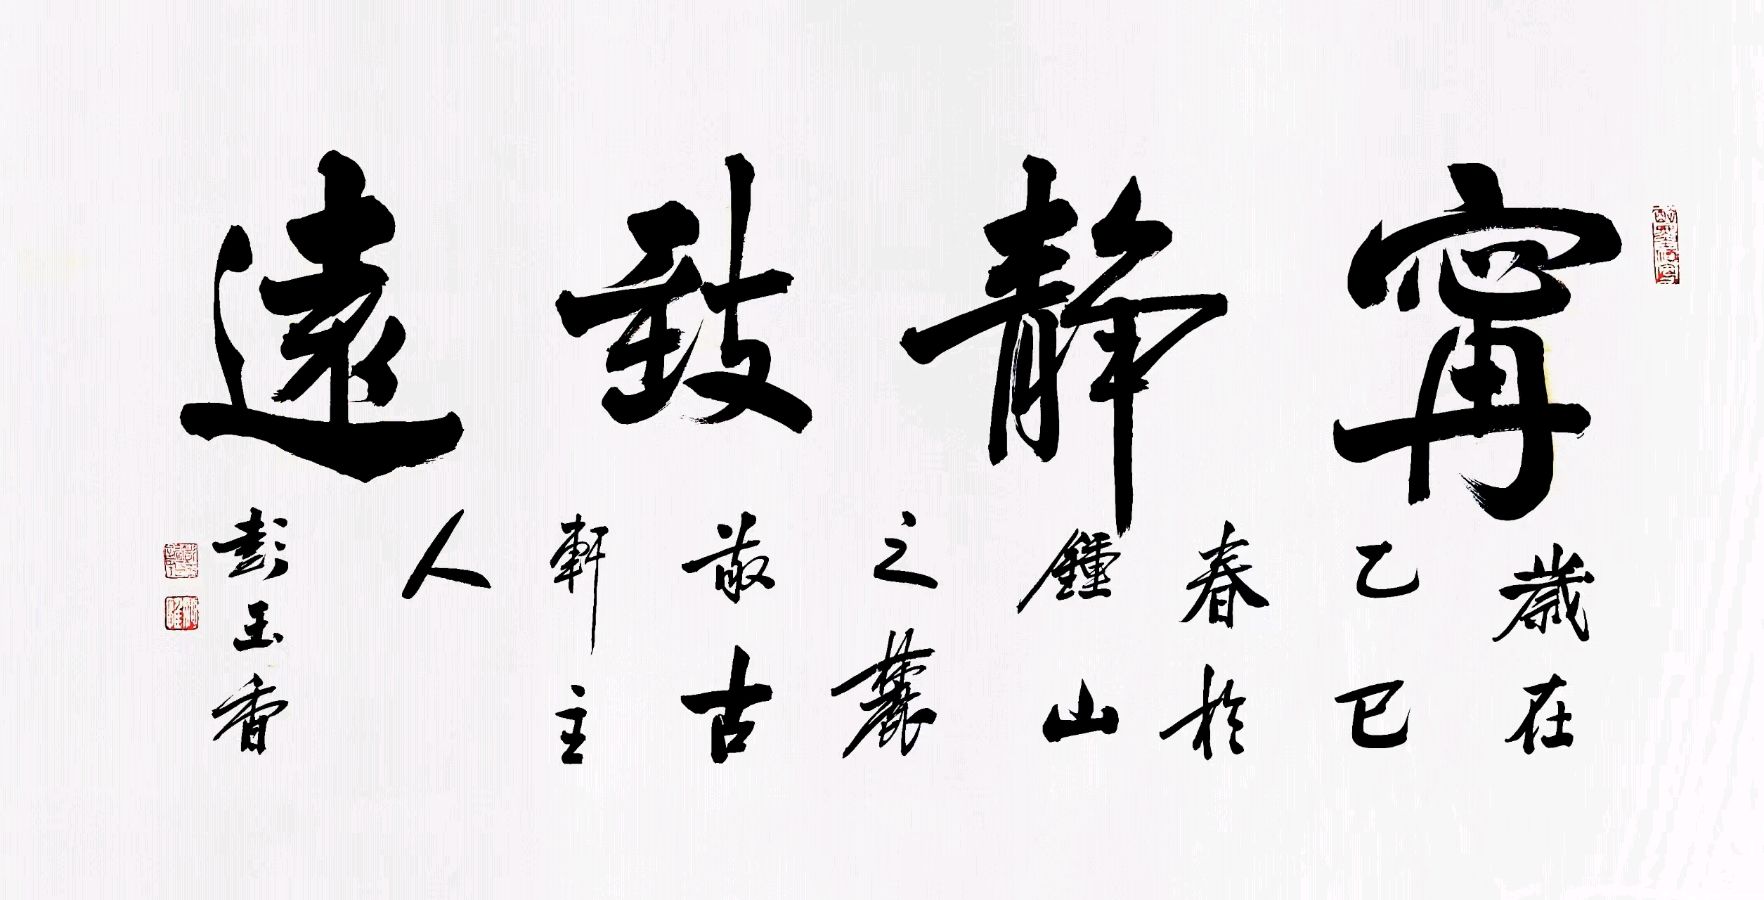 寧靜致遠
歲在
乙巳
春於
鍾山
之麓
散古
軒主
人
彭玉香